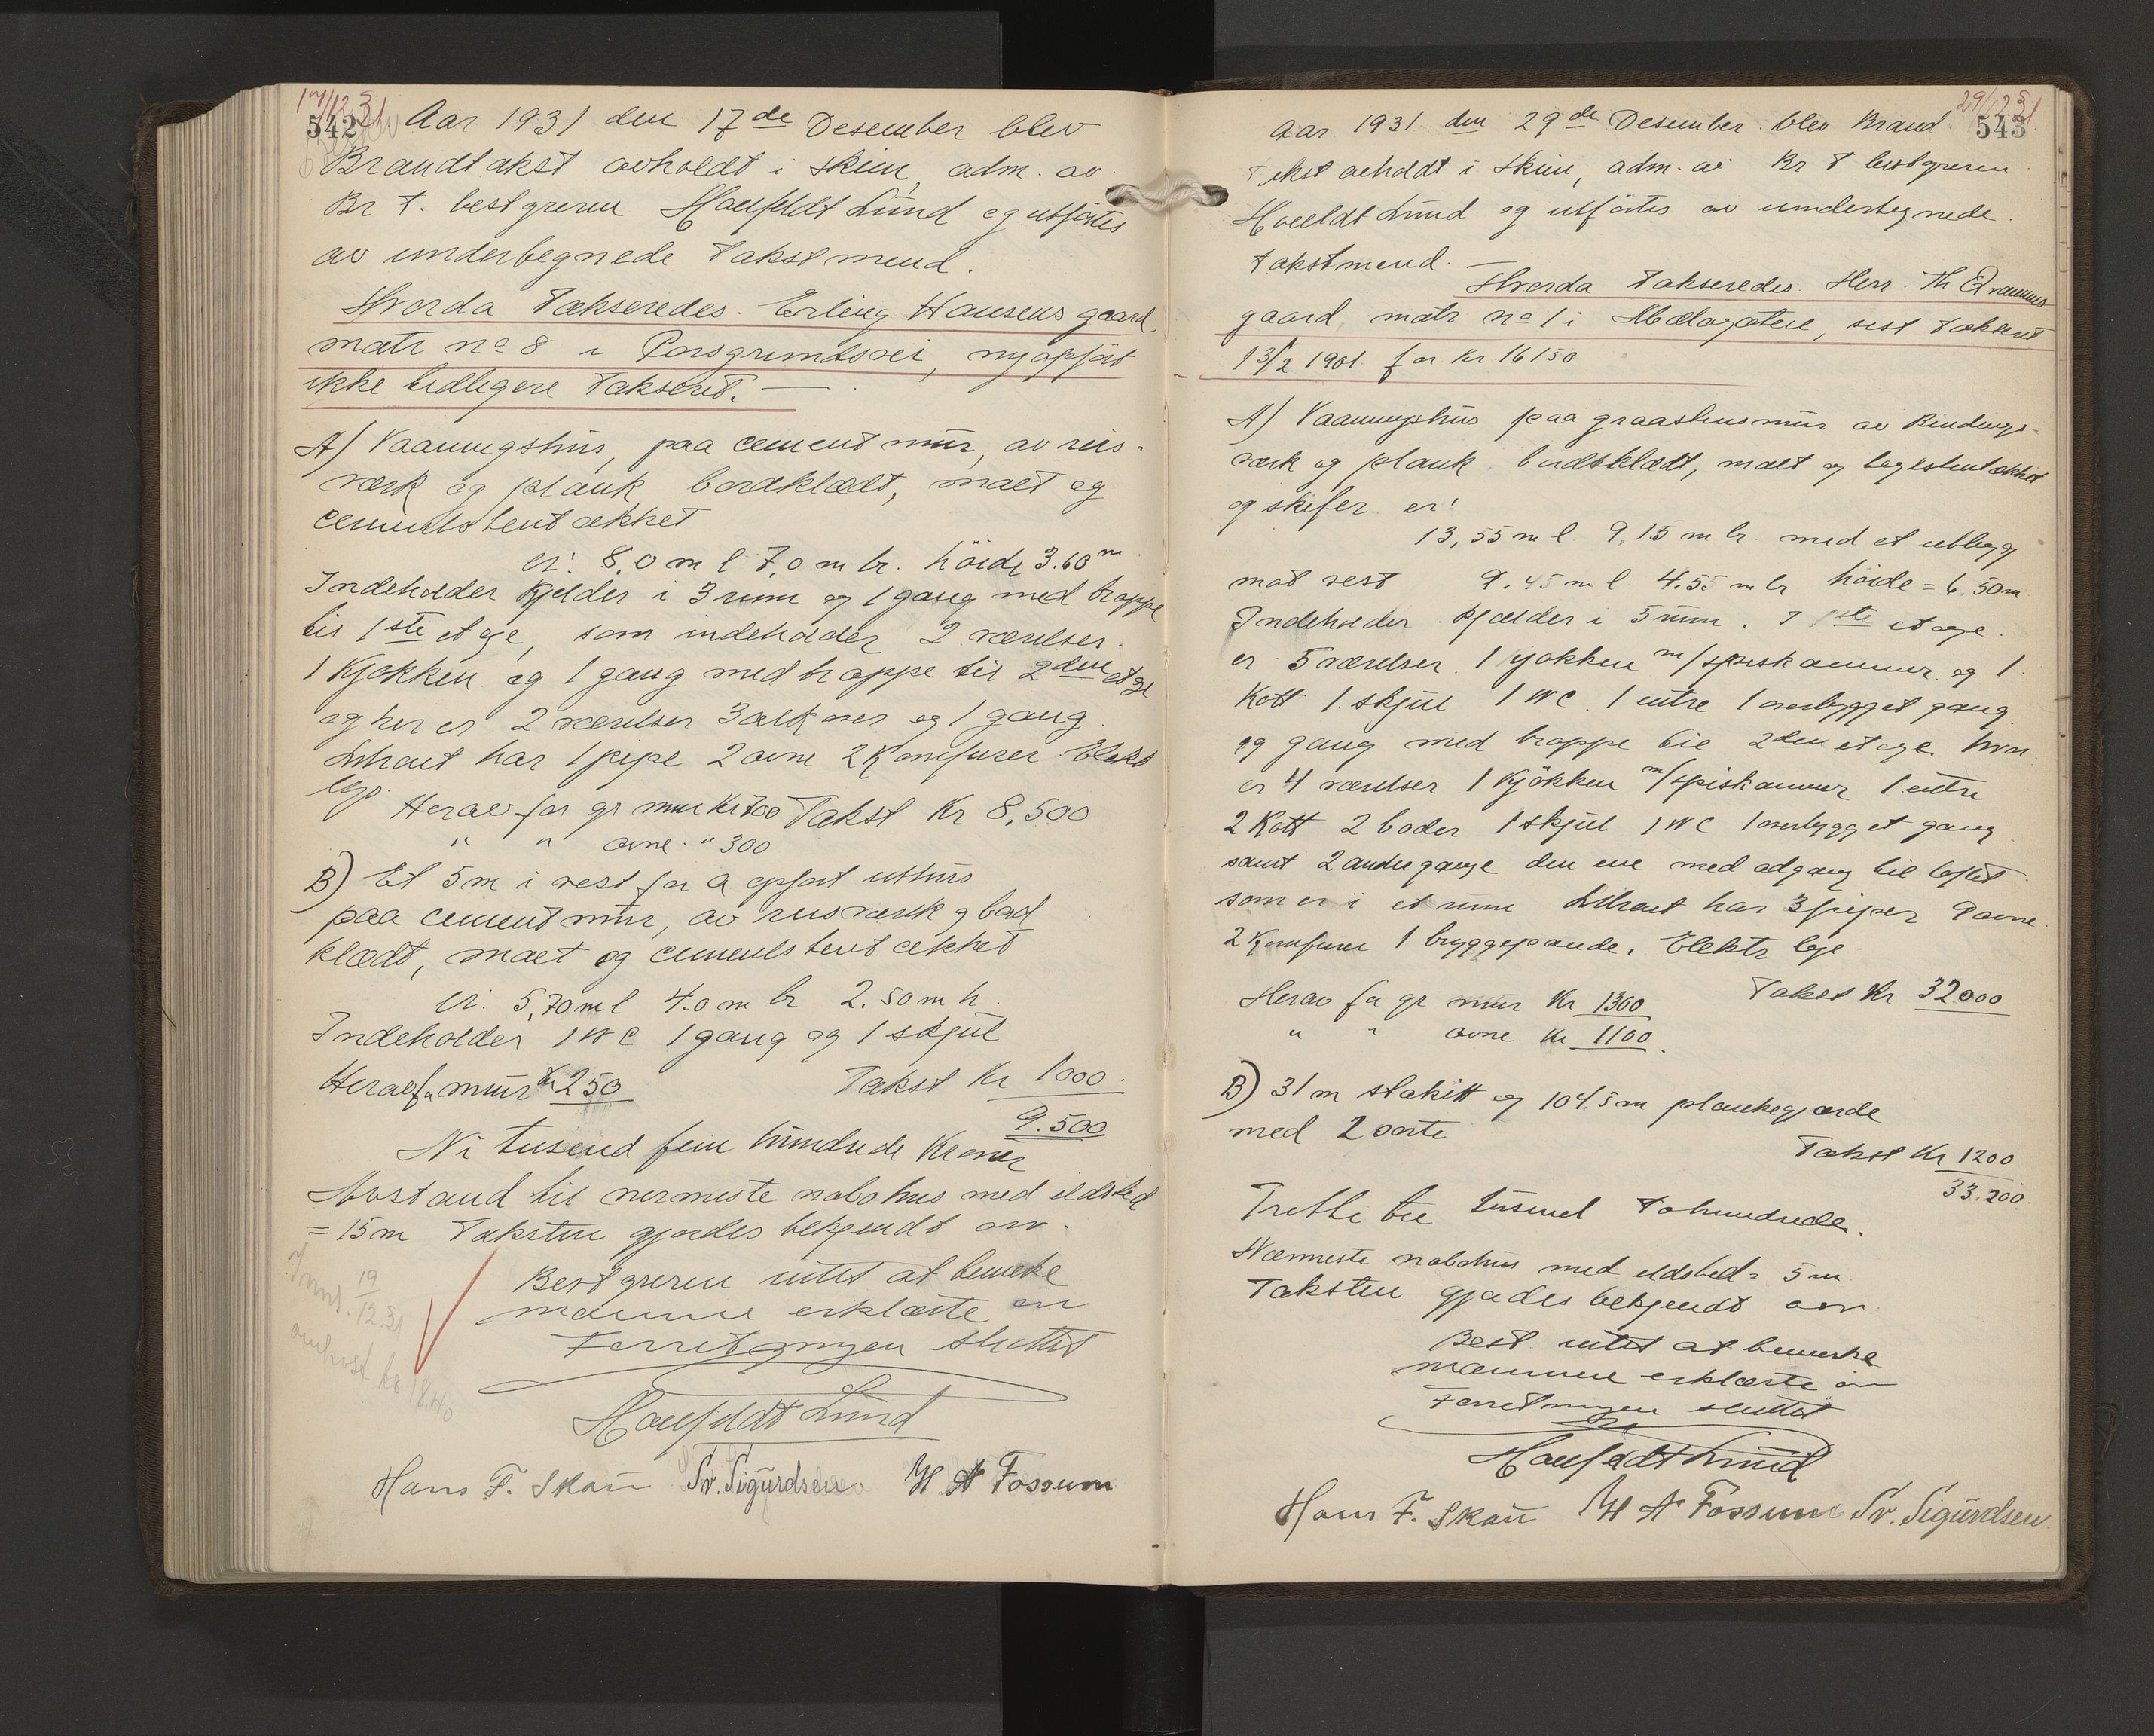 17/12 31
542
Aar 1931 den 17de Desember blev
Brandtakst avholdt i Skien, adm. av
Br t. bestyreren Haufeldt Lund og utførtes
av undertegnede Takstmend.
Hvorda Takseredes. Erling Hansens gaard,
matr no 8 i Porsgrundsvei, nyopført
ikke tidligere Takseret.
A) Vaaningshus, paa cement mur, av reis-
værk og plank, bordklædt, malt og
cementstentækket
er: 8,0 m l 7,0 m br. höide 3.60 m
Indeholder Kjelder i 3 rum og 1 gang med trappe
til 1ste etage, som indeholder 2 værelser.
1 Kjøkken og 1 gang med trappe til 2den etage
og her er 2 værelser 3 alkover og 1 gang.
Literait har 1 pipe 2 ovne 2 Komfurer Elekt
lys.
Herav for gr mur Kr 700 Takst Kr 8,500
" " ovne " 300
B) Et 5 m i vest for A opført uthus
paa cement mur, av reisværk og bord
klædt, malt og cementstentækket
er: 5,70 m l 4.0 m br 2.50 m h.
Indeholder 1 WC 1 gang og 1 skjul
Herav fr mur Kr 250 Takst Kr 1000.
9.500
Ni tusend fem hundrede Kroner
Avstand til nermeste nabohus med ildsted
= 15 m Taksten gjordes bekjendt
Bestyreren intet at bemerke
mænne erklærte
Forretningen sluttet
19/12.31
omkost kr 18.40
Haufeldt Lund
Hans F. Skau Sv. Sigurdsen H A Fossum
29/12 31
543
Aar 1931 den 29de Desember blev Brand
Takst avholdt i Skien, adm. av Br t bestyreren
Haufeldt Lund og utførtes av undertegnede
takstmend.
Hvorda Takseredes Herr Th
gaard, matr no 1 i sist Takseret
13/2 1901 for Kr 16150
A) Vaaningshus paa graastensmur av Bindings-
værk og plank bordsklædt, malt og teglstentækket
og skifer er:
13,55 m l 9,15 m br med et utbygg
mot vest 9,45 m l 4.55 m br höide = 6,50 m
Indeholder Kjelder i 5 rum. I 1ste etage.
er 5 værelser 1 kjøkken m/spiskammer og 1
Kott 1 skjul 1 WC. 1 entre 1 overbygget gang
og gang med trappe til 2den etage hvor
er 4 værelser 1 Kjökken m/spiskammer 1 entre
2 Kott 2 boder 1 skjul 1 WC 1 overbygget gang
samt 2 andre gange den ene med adgang til loftet
som er i et rum Literait har 3 piper 9 ovne
2 Komfurer 1 bryggepande. Elektr lys
Herav for gr mur Kr 1300 Takst Kr 32000
" " ovne Kr 1100.
B) 31 m stakitt og 104.5 m plankegjærde
med 2 porte
Takst Kr 1200
33.200.
Trette tre tusend Tohundrede.
Nærmeste nabohus med ildsted = 5 m
Taksten gjordes bekjendt
Best. intet at bemerke
mænnene erklærte
Forretningen sluttet
Haufeldt Lund
Hans F. Skau H A Fossum Sv. Sigurdsen